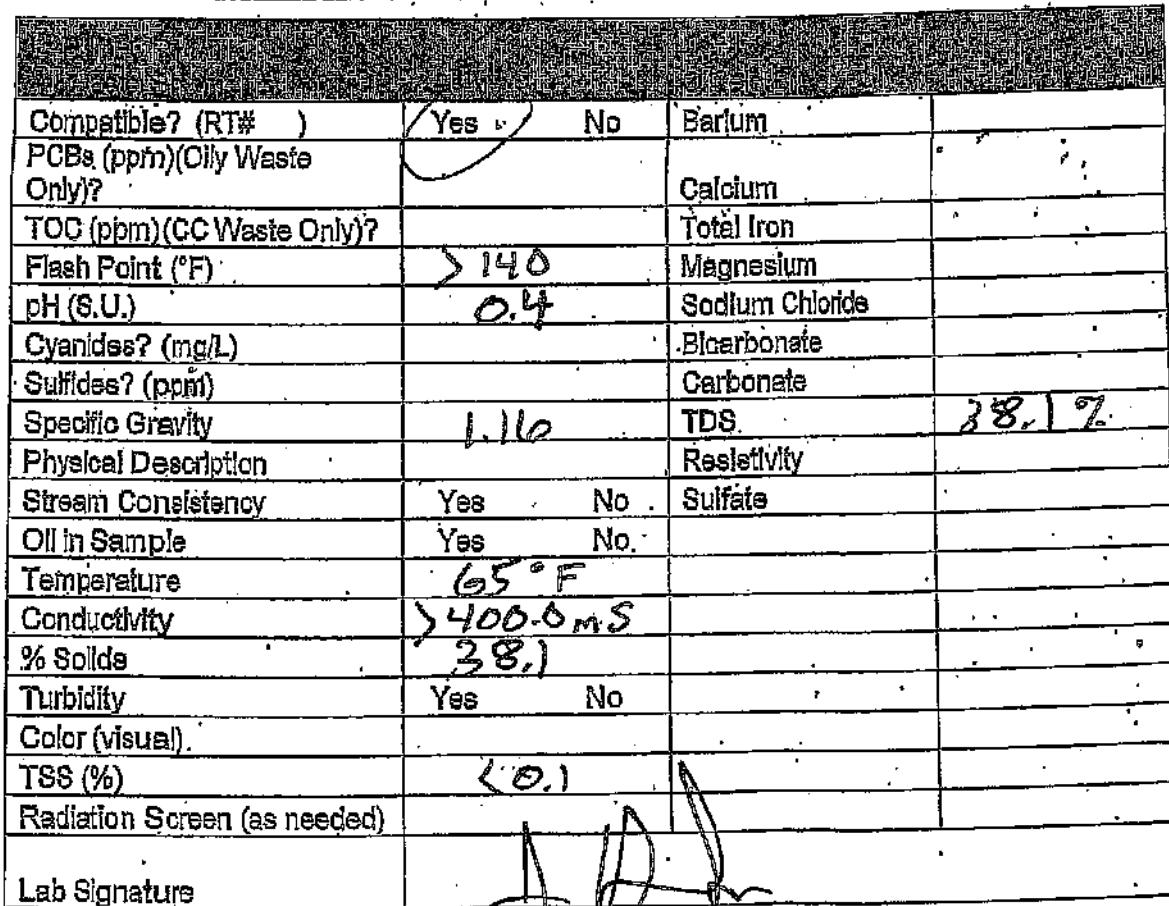 Compatible? (RT# ) Yes No Barium
PCBs (ppm)(Oily Waste
Only)? Calcium
TOC (ppm)(CC Waste Only)? Total Iron
Flash Point (°F) >140 Magnesium
pH (S.U.) 0.4 Sodium Chloride
Cyanides? (mg/L) Bicarbonate
Sulfides? (ppm) Carbonate
Specific Gravity 1.16 TDS 38.1%
Physical Description Resistivity
Stream Consistency Yes No Sulfate
Oil in Sample Yes No
Temperature 65°F
Conductivity >400.0 mS
% Solids 38.1
Turbidity Yes No
Color (visual)
TSS (%) <0.1
Radiation Screen (as needed)
Lab Signature